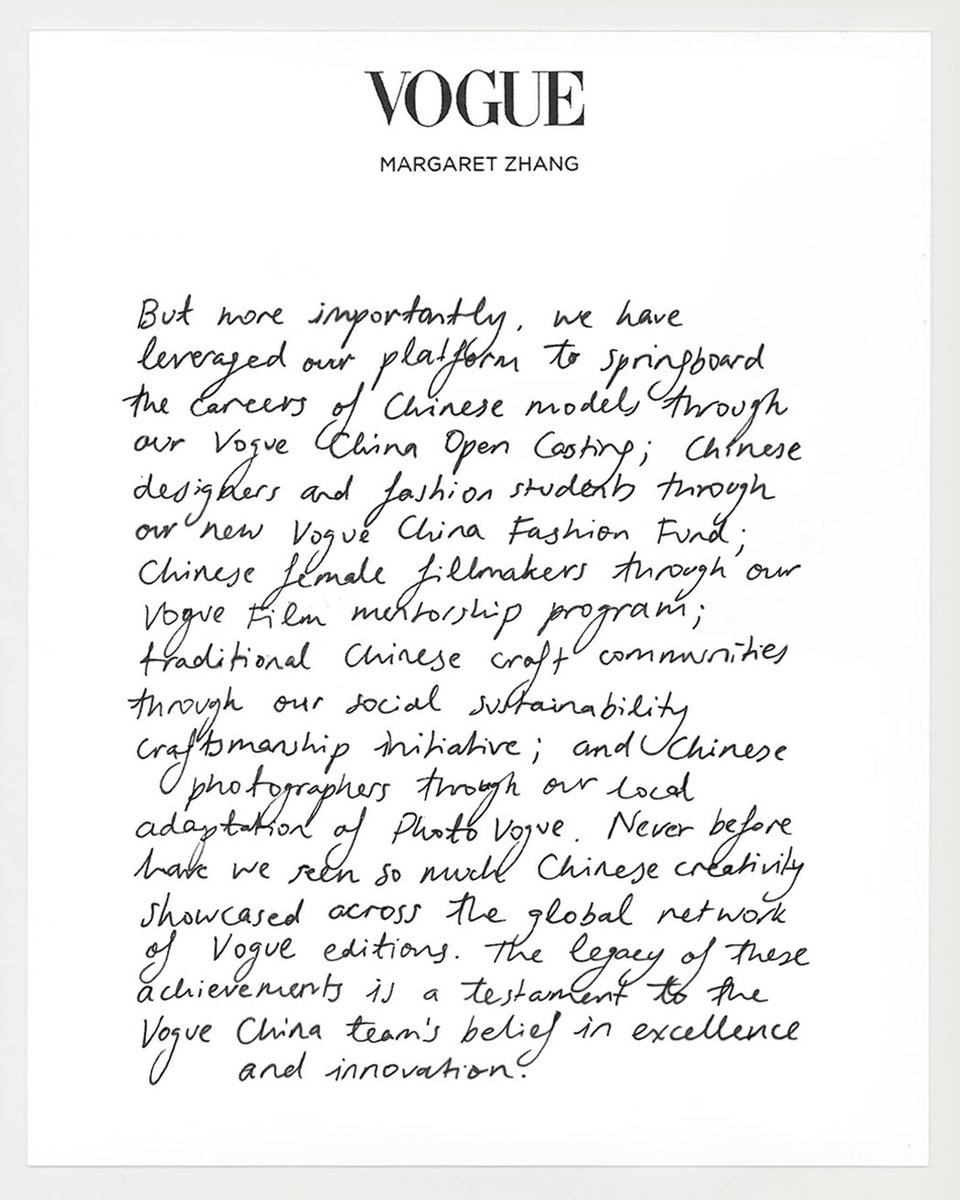 VOGUE
MARGARET ZHANG
But more importantly, we have
leveraged our platform to springboard
the careers of Chinese models through
our Vogue China Open Casting; Chinese
designers and fashion students through
our new Vogue China Fashion Fund;
Chinese female fillmakers through our
Vogue Film mentorship program;
traditional Chinese craft communities
through our social sustainability
craftsmanship initiative; and Chinese
photographers through our local
adaptation of Photo Vogue. Never before
have we seen so much Chinese creativity
showcased across the global network
of Vogue editions. The legacy of these
achievements is a testament to the
Vogue China team's belief in excellence
and innovation.